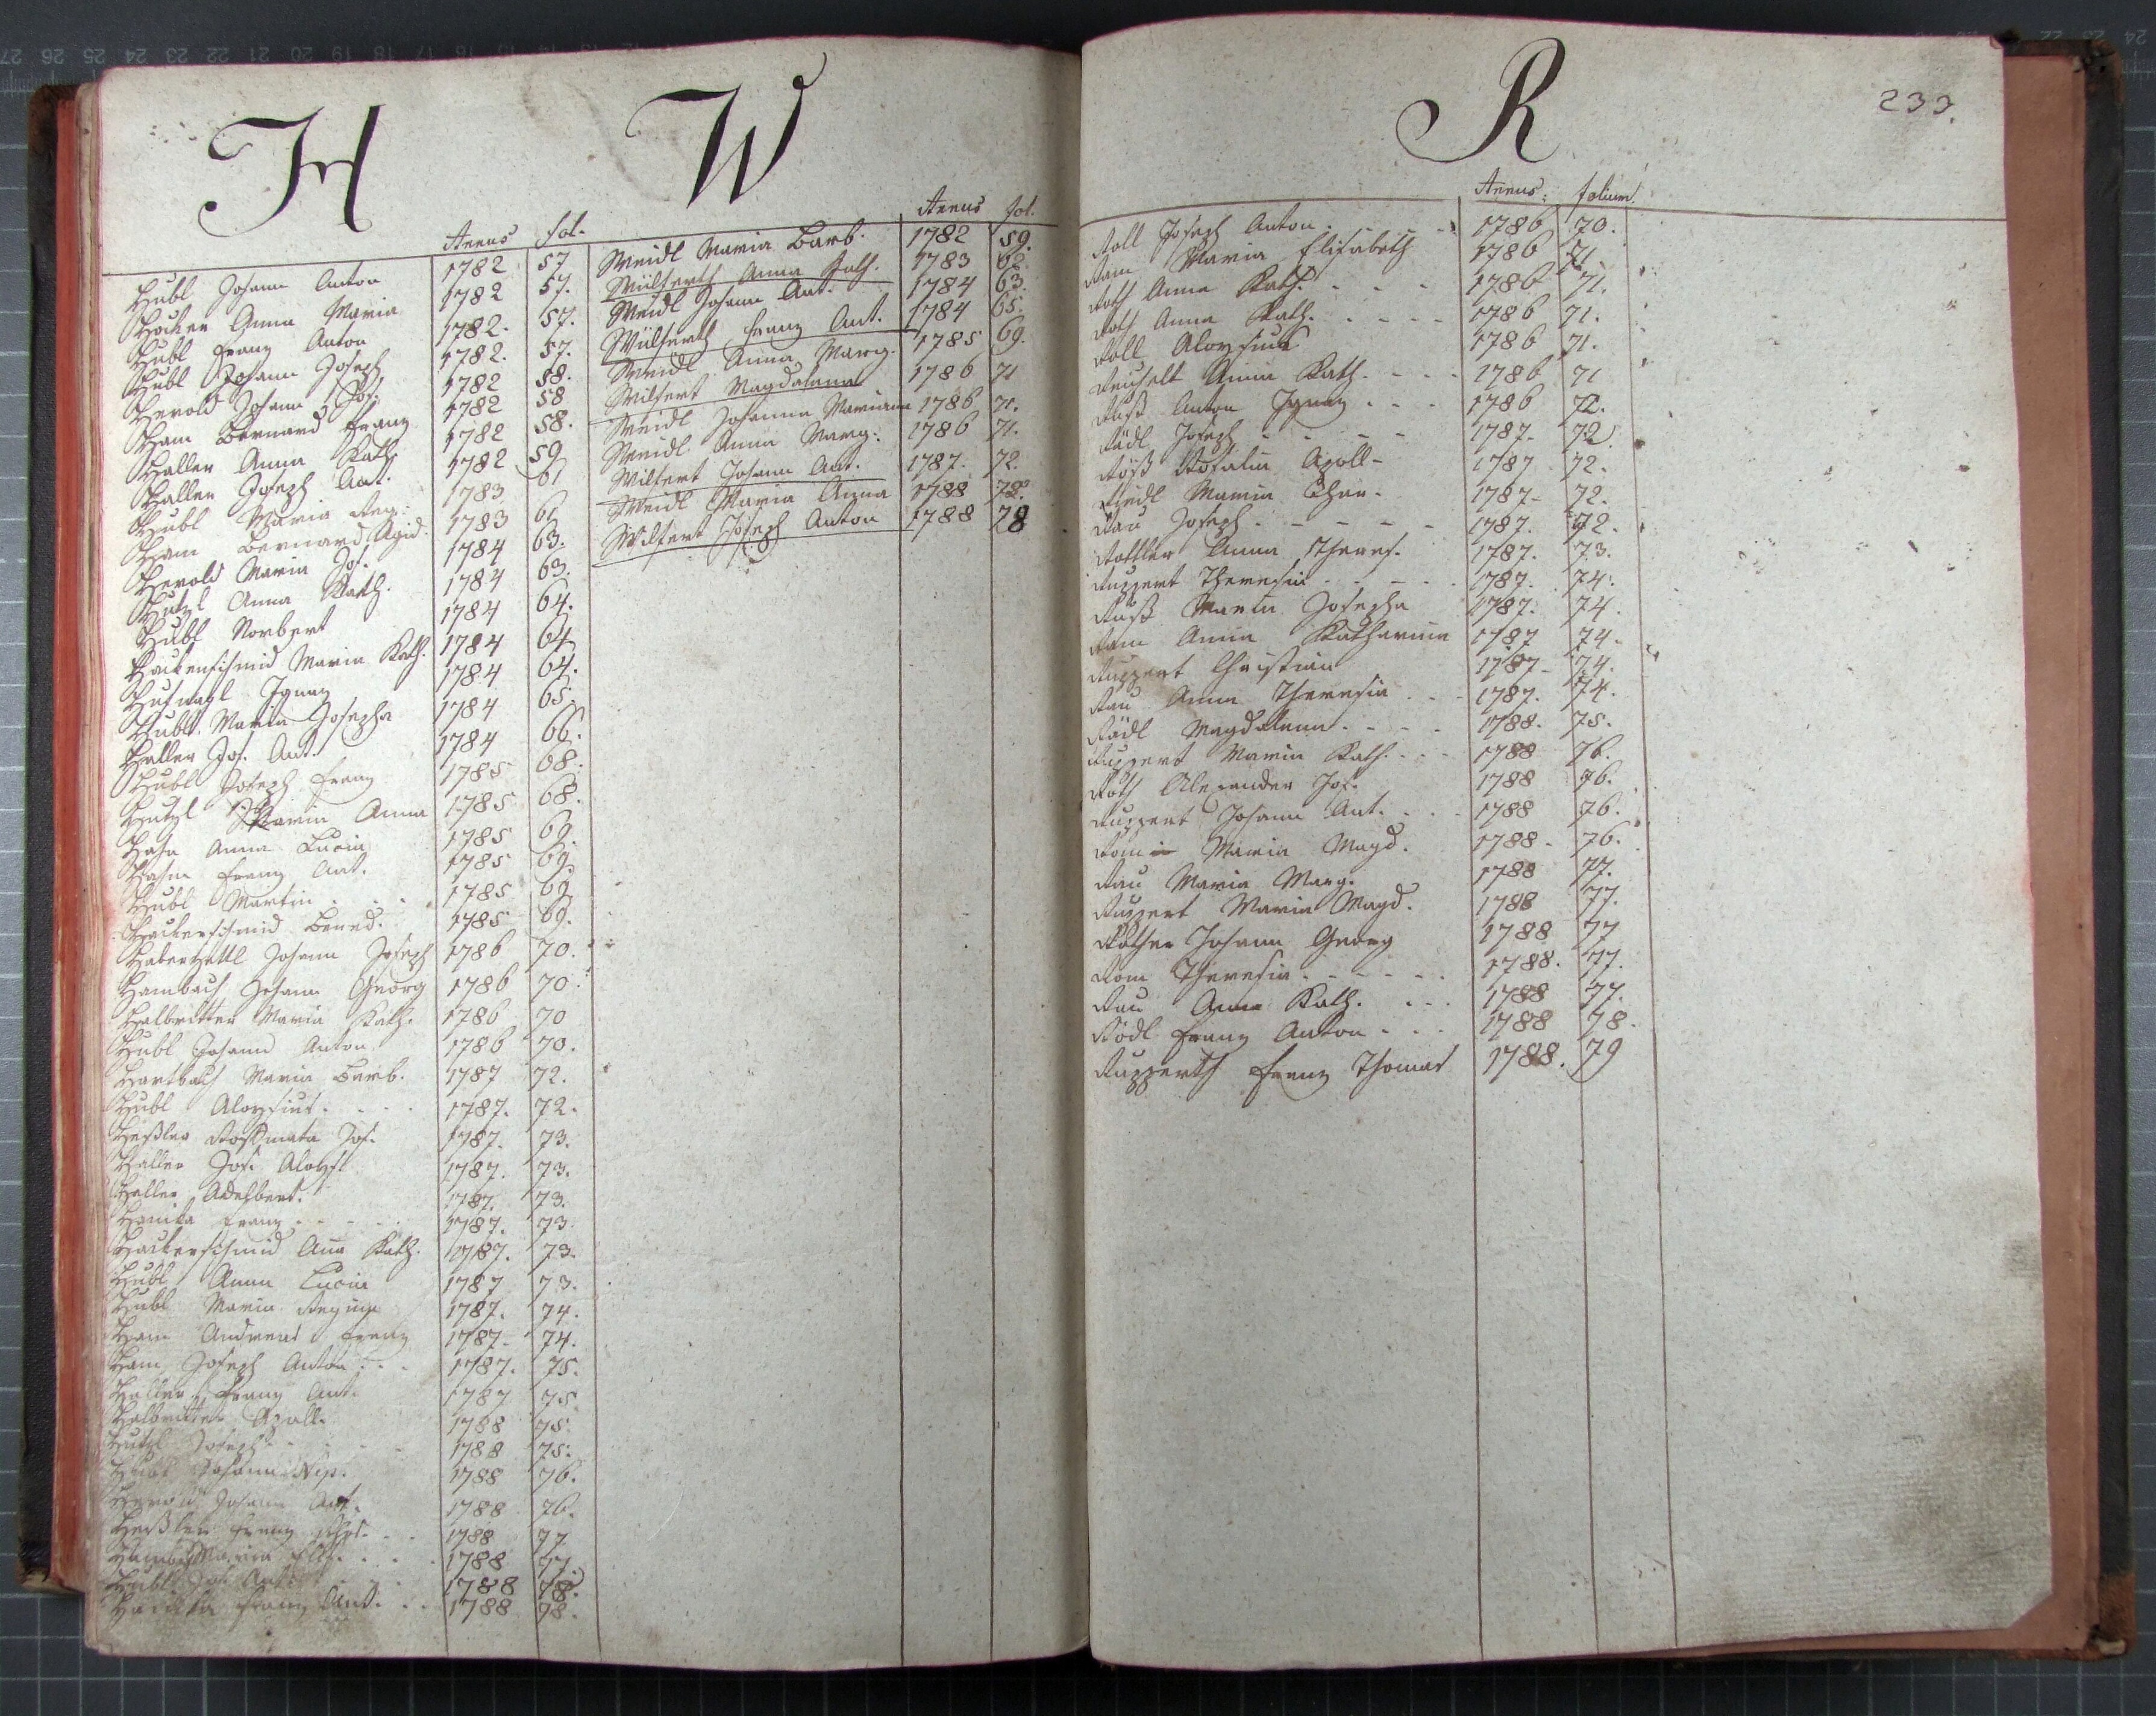 H
Annus fol.
Hubl Johann Anton 1782 57
Hocker Anna Maria 1782 57.
Hubl Franz Anton 1782. 57.
Hubl Johann Joseph 1782. 57.
Herold Johann Jos. 1782 58.
Ham Bernard Franz 1782 58
Haller Anna Kath. 1782 58.
Haller Joseph Ant. 1782 59
Hubl Maria Reg. 1783 61
Ham Bernard Agid. 1783 61
Herold Maria Jos. 1784 63.
Hutzl Anna Kath. 1784 63.
Hubl Norbert 1784 64.
Hackenschmid Maria Kath. 1784 64
Hufnagl Ignaz 1784 64.
Hubl Maria Josepha 1784 65.
Haller Jos. Ant. 1784 66.
Hubl Joseph Franz 1785 68.
Hutzl Maria Anna 1785 68.
Hahn Anna Lucia 1785 69.
Hahn Franz Ant. 1785 69.
Hubl Martin . . . 1785 69
Hackerschmid Bened. 1785 69.
Haberzettl Johann Joseph 1786 70.
Hambach Johann Georg 1786 70.
Halbritter Maria Kath. 1786 70
Hubl Johann Anton 1786 70.
Hartbach Maria Barb. 1787 72.
Hubl Aloysius . . . 1787. 72.
Heßler Jos. 1787. 73.
Haller Jos. Aloys 1787. 73.
Haller Adelbert. 1787. 73.
Hanika Franz . . . 1787. 73.
Hackerschmid Ana Kath. 1787. 73.
Hubl Anna Lucia 1787 73.
Hubl Maria Regina 1787. 74.
Ham Andreas Franz 1787. 74.
Ham Joseph Anton . . 1787. 75.
Haller Franz Ant. 1787 75
Halbritter Apoll. 1788 75.
Hutzl Joseph . . . 1788 75.
Hubl Johann Nep. 1788 76.
Herold Johann Ant. 1788 76.
Heßler Franz . . 1788 77
Maria . . 1788 77.
Hubl Jos. Ant. 1788 78.
Franz Ant. . . 1788 78.
W
Annus fol.
Weidl Maria Barb. 1782 59.
Wülferth Anna Kath. 1783 62.
Weidl Johann Ant. 1784 63.
Wülferth Franz Ant. 1784 65.
Weidl Anna Marg. 1785 69.
Wilfert Magdalena 1786 71
Weidl Johanna Mariana 1786 71.
Weidl Anna Marg. 1786 71.
Wilfert Johann Ant. 1787. 72.
Weidl Maria Anna 1788 78.
Wilfert Joseph Anton 1788 78
R
233.
Annus: folium.
Roll Joseph Anton . - - - 1786 70.
Ram Maria Elisabeth 1786 71.
Roth Anna Kath. - - - 1786 71.
Roth Anna Kath. - - - - 1786 71.
Roll Aloysius 1786 71.
Reichelt Anna Kath. - - - 1786 71
Ruß Anton Ignaz - - - 1786 72.
Rädl Joseph - - - - 1787- 72.
Rosalia Apoll- 1787 72.
Riedl Maria Ther. 1787- 72.
Rau Joseph . - - - - 1787. 72.
Rottler Anna Theres. 1787. 73.
Ruppert Theresia - - - - 1787. 74.
Ruß Maria Josepha 1787. 74.
Ram Anna Katharina 1787 74.
Ruppert Christina 1787- 74.
Rau Anna Theresia . - - 1787. 74.
Rädl Magdalena . - - - 1788. 75.
Ruppert Maria Kath. - - - 1788 76.
Roth Alexander Jos. 1788 76.
Ruppert Johann Ant. . - . 1788 76.
Rom Maria Magd. 1788 - 76.
Rau Maria Marg. 1788 77.
Ruppert Maria Magd. 1788 77.
Rother Johann Georg 1788 77
Rom Theresia . - - - - - 1788. 77.
Rau Anna Kath. . - - 1788 77.
Rödl Franz Anton - - - 1788 78.
Rupperth Franz Thomas 1788. 79